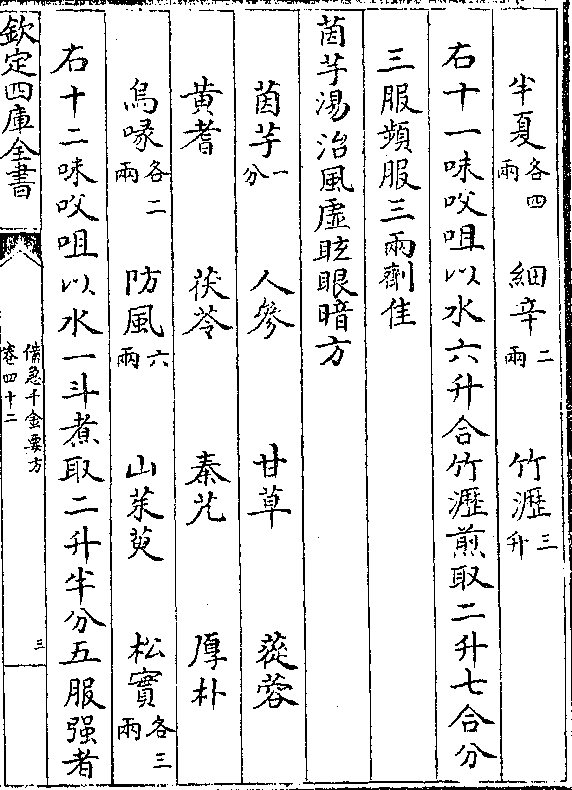 半夏各四兩 細辛二兩 竹瀝三升
右十一味㕮咀以水六升合竹瀝煎取二升七合分
三服頻服三兩劑佳
茵芋湯治風虛眩眼暗方
茵芋一分 人參 甘草 蓯蓉
黃耆 茯苓 秦艽 厚朴
烏喙各二兩 防風六兩 山茱萸 松實各三兩
右十二味㕮咀以水一斗煮取二升半分五服强者
欽定四庫全書
備急千金要方
卷四十二
三